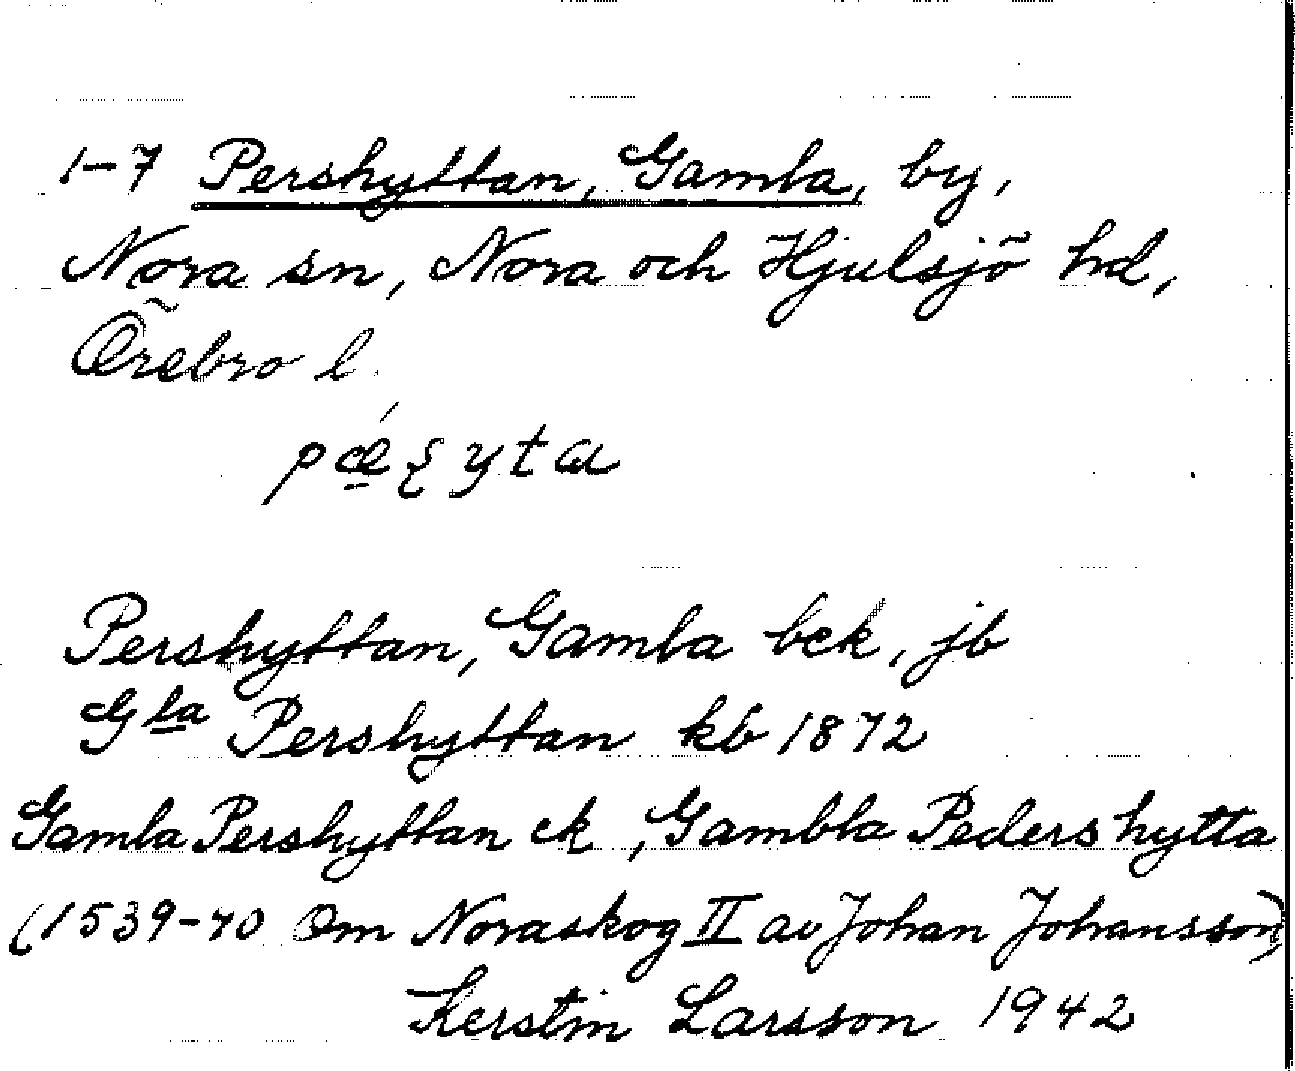 1-7 Pershyttan, Gamla, by,
Nora sn, Nora och Hjulsjö hd,
Örebro l.
Pershyttan, Gamla bek, jb
Gla Pershyttan kb 1872
Gamla Pershyttan ek, Gambla Pedershytta
(1539-40 Om Noraskog II av Johan Johansson)
Kerstin Larsson 1942